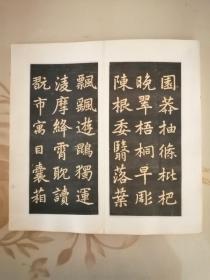 園莽抽條枇杷
晚翠梧桐早彫
陳根委翳落葉
飄颻遊鵾獨運
凌摩絳霄耽讀
翫市寓目囊箱